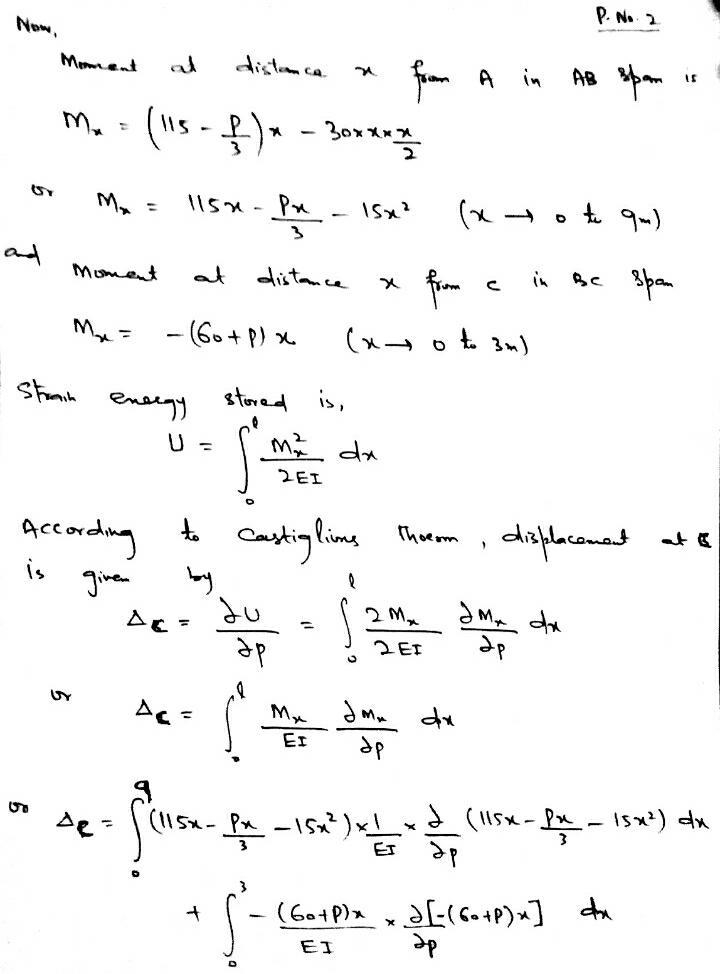 P. No. 2
Now,
Moment at distance x from A in AB span is
Mx = (115 - P/3)x - 30×x×x/2
or Mx = 115x - Px/3 - 15x² (x → 0 to 9m)
and Moment at distance x from C in BC span
Mx = -(60+P)x (x → 0 to 3m)
Strain energy stored is,
U = ∫₀^l Mx²/2EI dx
According to Castiglions Thoerm, displacement at C
is given by
Δc = ∂U/∂P = ∫₀^l 2Mx/2EI ∂Mx/∂P dx
or Δc = ∫₀^l Mx/EI ∂Mx/∂P dx
or Δc = ∫₀^9 (115x - Px/3 - 15x²) × 1/EI × ∂/∂P (115x - Px/3 - 15x²) dx
+ ∫₀^3 -(60+P)x/EI × ∂[-(60+P)x]/∂P dx